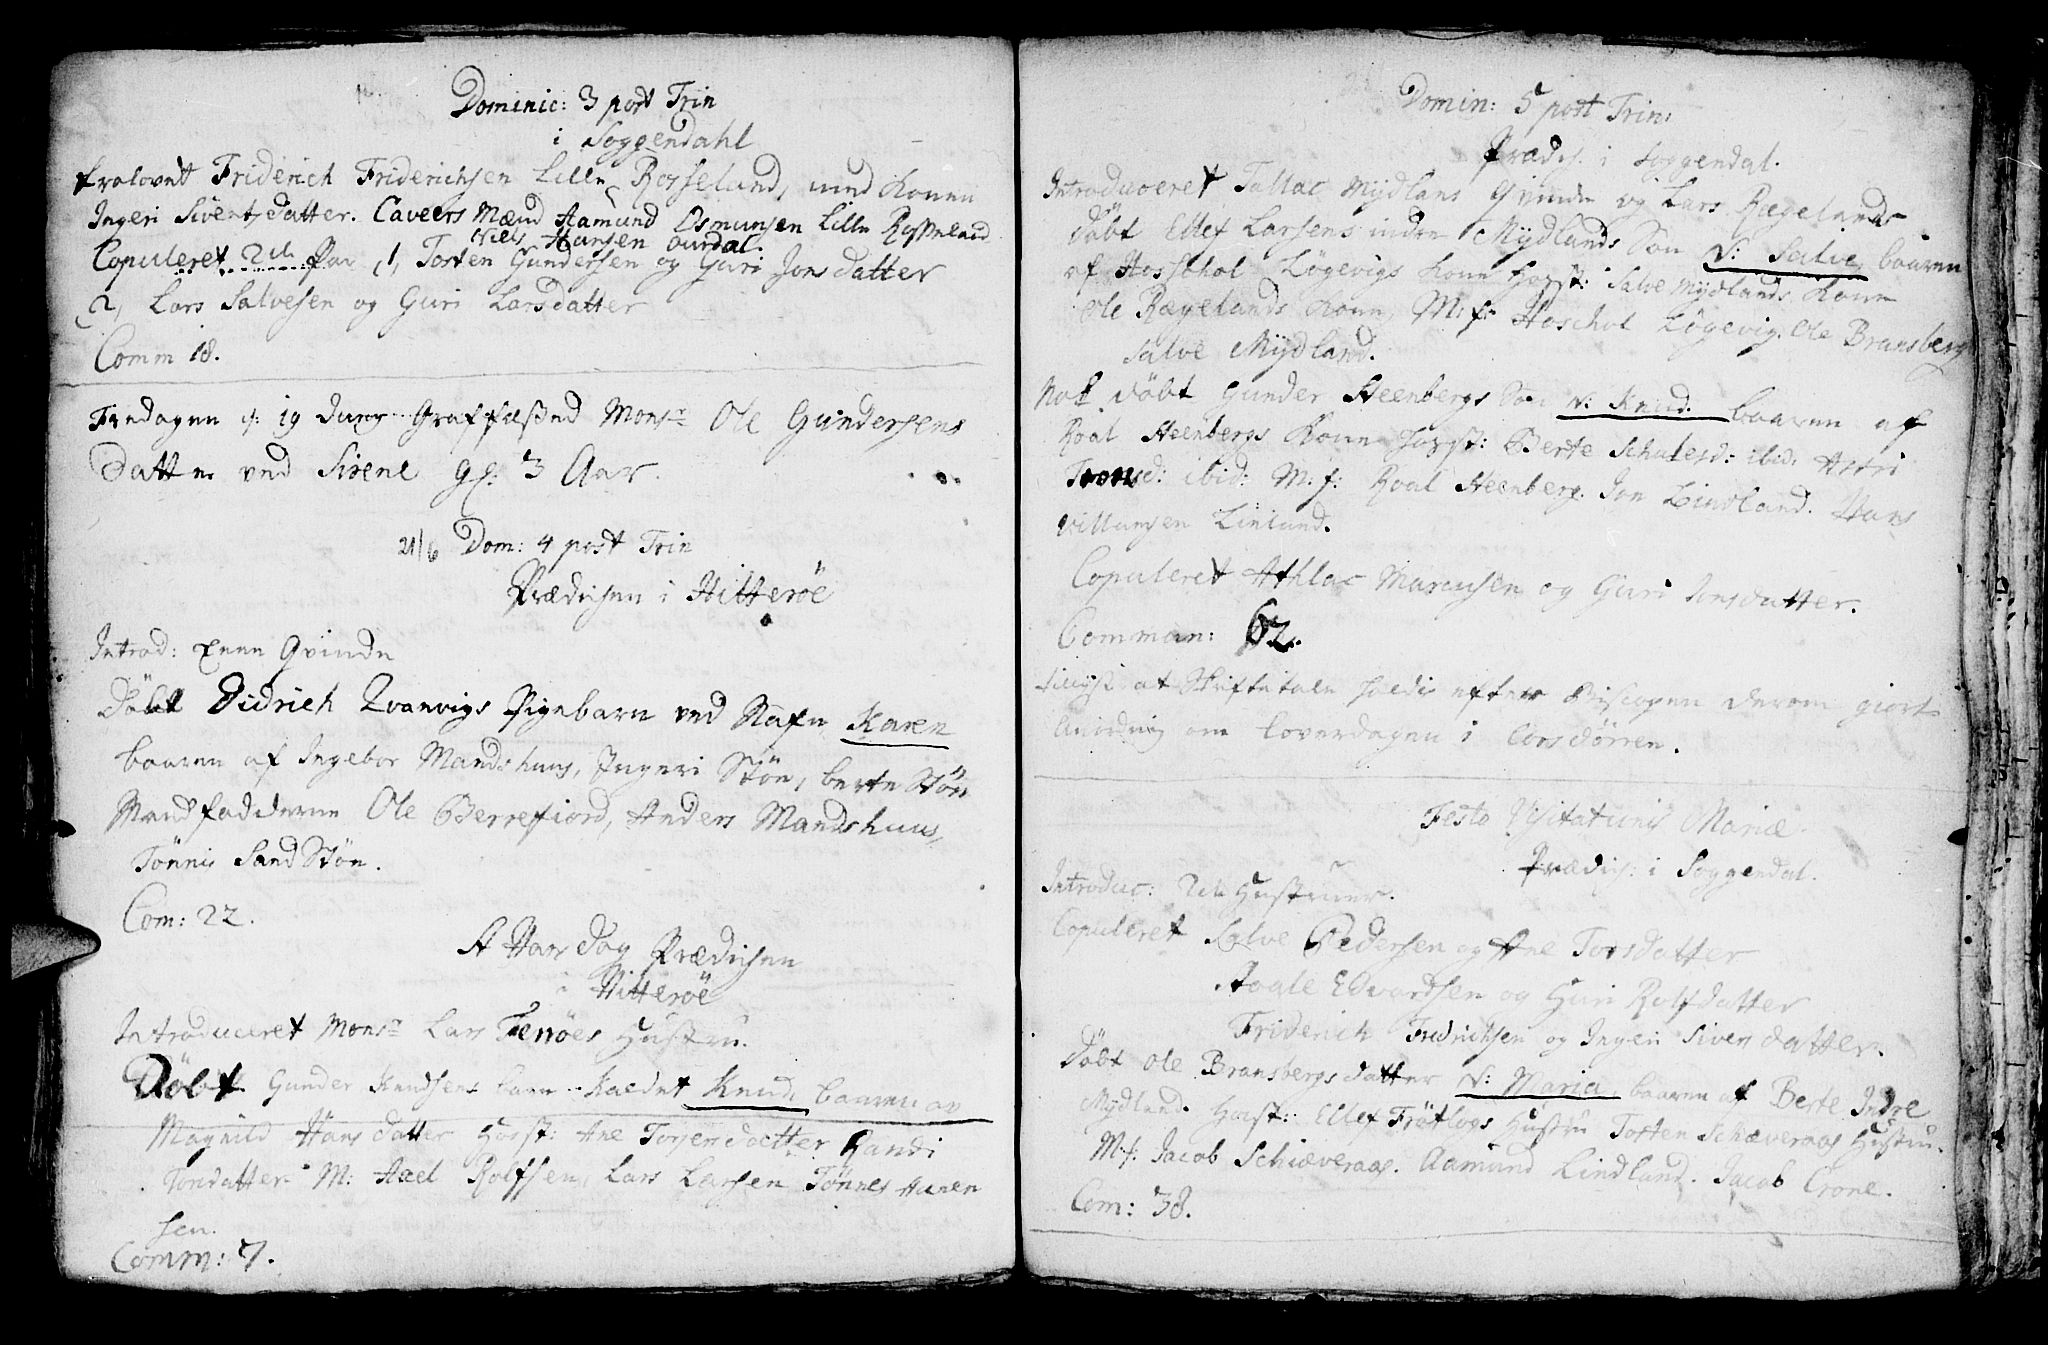 Dominic: 3 post Trin
i Soggendahl
trolovet Friderich Friderichsen Lille Rosseland, med Konen
Ingeri Sivertsdatter. Caveers Mænd Aamund Osmunsen Lille Rosseland
Niels Hansen Ourdal.
Copuleret 2de Par 1, Tosten Gundersen og Guri Jonsdatter
2, Lars Salvesen og Guri Larsdatter
Comm 18.
Fredagen d: 19 Juny Graffæsted Mons: Ole Gundersens
Datter ved Sirene gl: 3 Aar.
21/6 Dom: 4 post Trin
Prædichen i Hitterøe
Introd: Eenn Qvinde
Døbt Didrich Rvanvigs Pigebarn ved Nafn Karen
baaren af Ingebor Mandshuus, Ingeri Støn, berte Støn
Mandfadderne Ole Berrefiord, Anders Mandshuus,
Tönnis Sand Støn.
Com: 22.
St Hans Dag Prædichen
i Hitterøe
Introduceret Mons: Lars Fenøes Hustru.
Døbt Gunder Knudsens barn Kaldet Knud, baaren av
Magnild Hansdatter Hosst: Ane Torjersdaetter Randi
Tordatter M: Axel Rolfsen, Lars Larsen Tönnes Hanen
sen.
Comm: 7.
Domin: 5 post Trin:
Prædich. i Soggendal.
Introduceret Tallac Mydlans Qvinde og Lars Rægelands
Döbt Ellef Larsens indre Mydlands Søn N: Salve, baaren
af Hoschol Lögevigs Kone Hosst: Salve Mydlands Kone
Ole Rægelands Kone, M: f: Hoschol Lögevig. Ole Bransberg
Salve Mydland.
Nok döbt Gunder Steenbergs Søn N: Knud. baaren af
Roal Steenbergs Kone Hosst: Berte Schulesd: ibid: Astri
Tronsd: ibid: M: f: Roal Steenberg. Jon Lindland. Hans
Villumsen Linland.
Copuleret Athlac Marcusen og Guri Jonsdatter.
Commun: 62.
at Skriftetale holdis efter Biscopen derom giort
Anordning om Loverdagen i Corsdörren.
Festo Visitationis Mariæ.
Prædich: i Soggendal.
Introduc: 2de Hustruer.
Copuleret Salve Pedersen og Ane Torsdatter
Aaale Edvardsen og Guri Rolfdatter
Friderich Fredrichsen og Ingeri Siversdatter.
Døbt Ole Bransbergs datter N: Maria, baaren af Berte Indre
Mydland. Hosst: Ellef Frötlogs Hustru Tosten Schæveraas Hustru.
M: f: Jacob Schiæveraas. Aamund Lindland. Jacob Crone.
Com: 38.